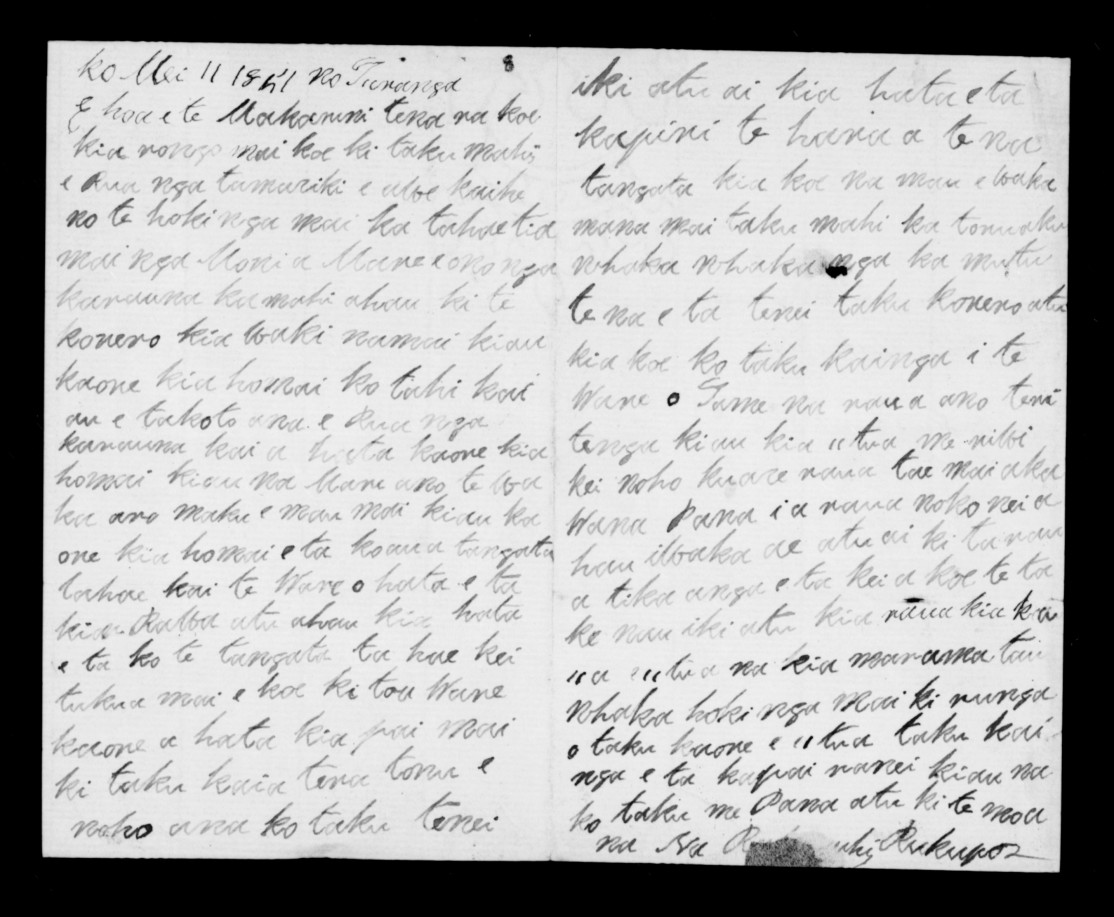 8
ko Mei 11 1851 no Turanga
E hoa e te Makarini tena ra koe
kia rongo mai koe ki taku mahi
e Rua nga tamariki e
no te hokinga mai ka tahaetia
mai nga Moni a Mare e ono nga
karauna ka mahi ahau ki te
korero kia waki namai kiau
kaore kia homai ko tahi kai
au e takoto ana e Rua nga
karauna kai a hata kaore kia
homai kiau na Mare ano te wa
ka aro maku e mau mai kiau ka
ore kia homai e ta ko aua tangata
tahae kai te Ware o hata e ta
kia Rawa atu ahau kia hata
e ta ko te tangata ta hae kei
tukua mai e koe ki toa Ware
kaore a hata kia pai mai
ki taku kaia tena tonu e
noho ana ko taku tenei
iki atu ai kia hata e ta
kapiri te haria a tena
tangata kia koe na mau e waka
mana mai taku mahi ka tonu aku
whaka whaka nga ka mutu
te na e ta tenei taku korero atu
kia koe ko taku kainga i te
Ware o Tame na raua ano teni
tenga kiau kia "tua me
kei noho kuare raua tae mai aka
Wana Pana i a raua noko nei a
hau iwaka ae atu ai ki ta rau
a tika anga e ta kei a koe te ta
ke nau iki atu kia raua kia ka
"a "tua na kia marama tau
whaka hoki nga mai ki runga
o taku kaore e "tua taku kai
nga e ta kapai ranei kiau na
ko taku me Pana atu ki te moa
na Na Rukupo